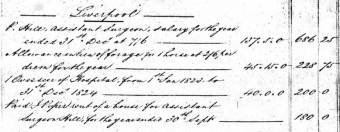 Liverpool
P. Hill, assistant surgeon, salary for the year
ended 31st Decr at 7/6 137.5.0 686 25
Allowance in lieu of forage for 1 horse at 2/6 per
diem for the year 45.15.0 228 75
1 Overseer of Hospital, from 1st Jan 1823 to
31st Decr 1824 40.0.0 200 0
Paid J Piper rent of a house for assistant
Surgeon Hill, for the year ended 30th Sept 180 0